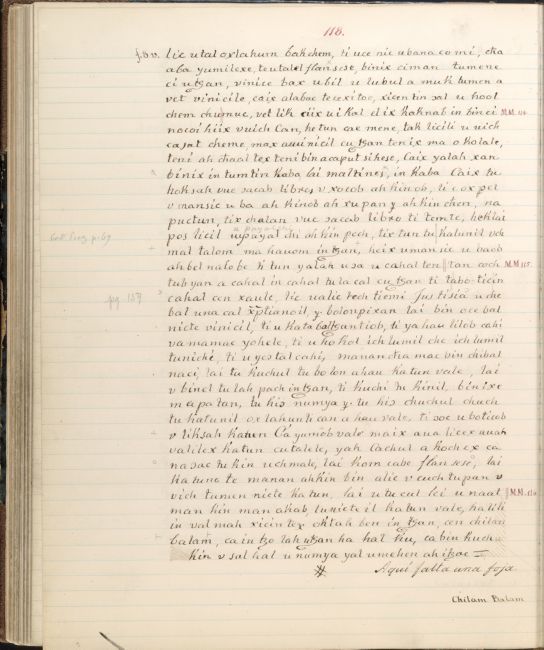 118.
f.8.v. lic utal oxlahun bakchem, ti uce nic ubana comi, cka
aba yumilexe, teutalel flansese, binix ciman tumene
ci uɔan, vinice bax ubil u lubul a muk tumen a
vet vinicile, caix alabac tecexitoc, xicen tin sal u hool
chem chumuc, vet lik ciix ui kal elix kaknab in binci M.M. 114.
nocoi hiix vuich Can, he tun cae mene, tak licili u uich
caput cheme, max auuinicil cu ɔan ten ix ma okolale,
teni ah chaal tex teni bin acaput sihese, Caix yalah xan
binix in tumtin kaba, lai maltines, in kaba Caix tu
hoksah vuc sacab libro, v xocob ah kinob, ti c ox pel
v mansic u ba ah kinob ah xupan y. ah kin chen, na
puctun, tix chalan vuc sacab libro ti temte, hoklai
pos licil uppayal chi ah kin pech, tix tun tu katunil vch
mal talom ma hauom in ɔan, heix umanic u uaob
ah bel nalobe ti tun yalah u sa u cahal ten tan coch M.M 115.
tub yan a cahal in cahal tu la cal cu ɔan ti taboticin
cahal cen xaule, lic ualic tech tiemi Justisia uche
bal una cal xp̃tianoil y. bolonpixan lai bin oce bal
nicte vinicil, ti u kata ti ya hau lilob cahi
va mamac yohele, ti u hokol ich lumil che ich lumil
tunich, ti u yes tal cahi, manan cka mac bin chibal
naci, lai tu kuchul tu bolon ahau katun vale, lai
v binel tu lah pach in ɔan, ti kuchi tu kinil, binix e
mapatan, tu kis numya y. tu kis chuchul chuch
tu katunil ox lahunti can ahau vale, ti soc u boticob
v liksah katun Ca yumob vale maix aua licex auah
valilex katun cutalele, yah Cachul a koch ex ca
nasac tu kin uchmale, lai kom cabe flansese, lai
katune te manan ahkin bin alic v cuch tu pan v
vich tumen nicte katun, lai u tu cul lei u naat M.M. 116
man kin man akab, lu nicte il katun vale, ka lili
in val mah xicin tex oktah ben in ɔan, cen chilan
balam, ca in tzolah u ɔan ha hal ku, ca bin kuch
kin v sal hal u numya yal u mehen ah iɔae =
Aqui falta una foja
pg. 157
Chilam Balam